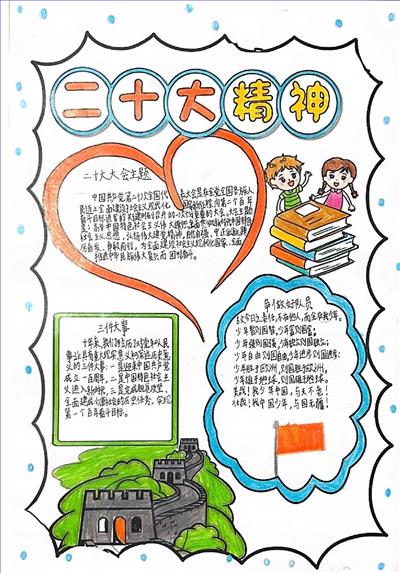 二十大精神
二十大大会主题
中国共产党第二十次全国代
表大会是在全党全国各族人
奋斗目标
的一次
重要的大会。大会主题
是：高举中国特色社会主义伟大旗帜，
社会主义思想，弘扬伟大建党精神，自信自强、守正创新，踔
厉奋发、勇毅前行，为全面建设社会主义现代化国家、全面
推进中华民族伟大复兴而团结奋斗。
三件大事
十年来，我们经历了对党和人民
事业具有重大现实意义和深远历史意
义的三件大事：一是迎来中国共产党
成立一百周年，二是中国特色社会主
义进入新时代，三是完成脱贫攻坚、
全面建成小康社会的历史任务，实现
第一个百年奋斗目标。
争做好队员
故今日之责任，不在他人，而全在我少年。
少年智则国智，少年富则国富；
少年强则国强，少年独立则国独立；
少年自由则国自由，少年进步则国进步；
少年胜于欧洲，则国胜于欧洲，
少年雄于地球，则国雄于地球。
美哉！我少年中国，与天不老！
壮哉！我中国少年，与国无疆！